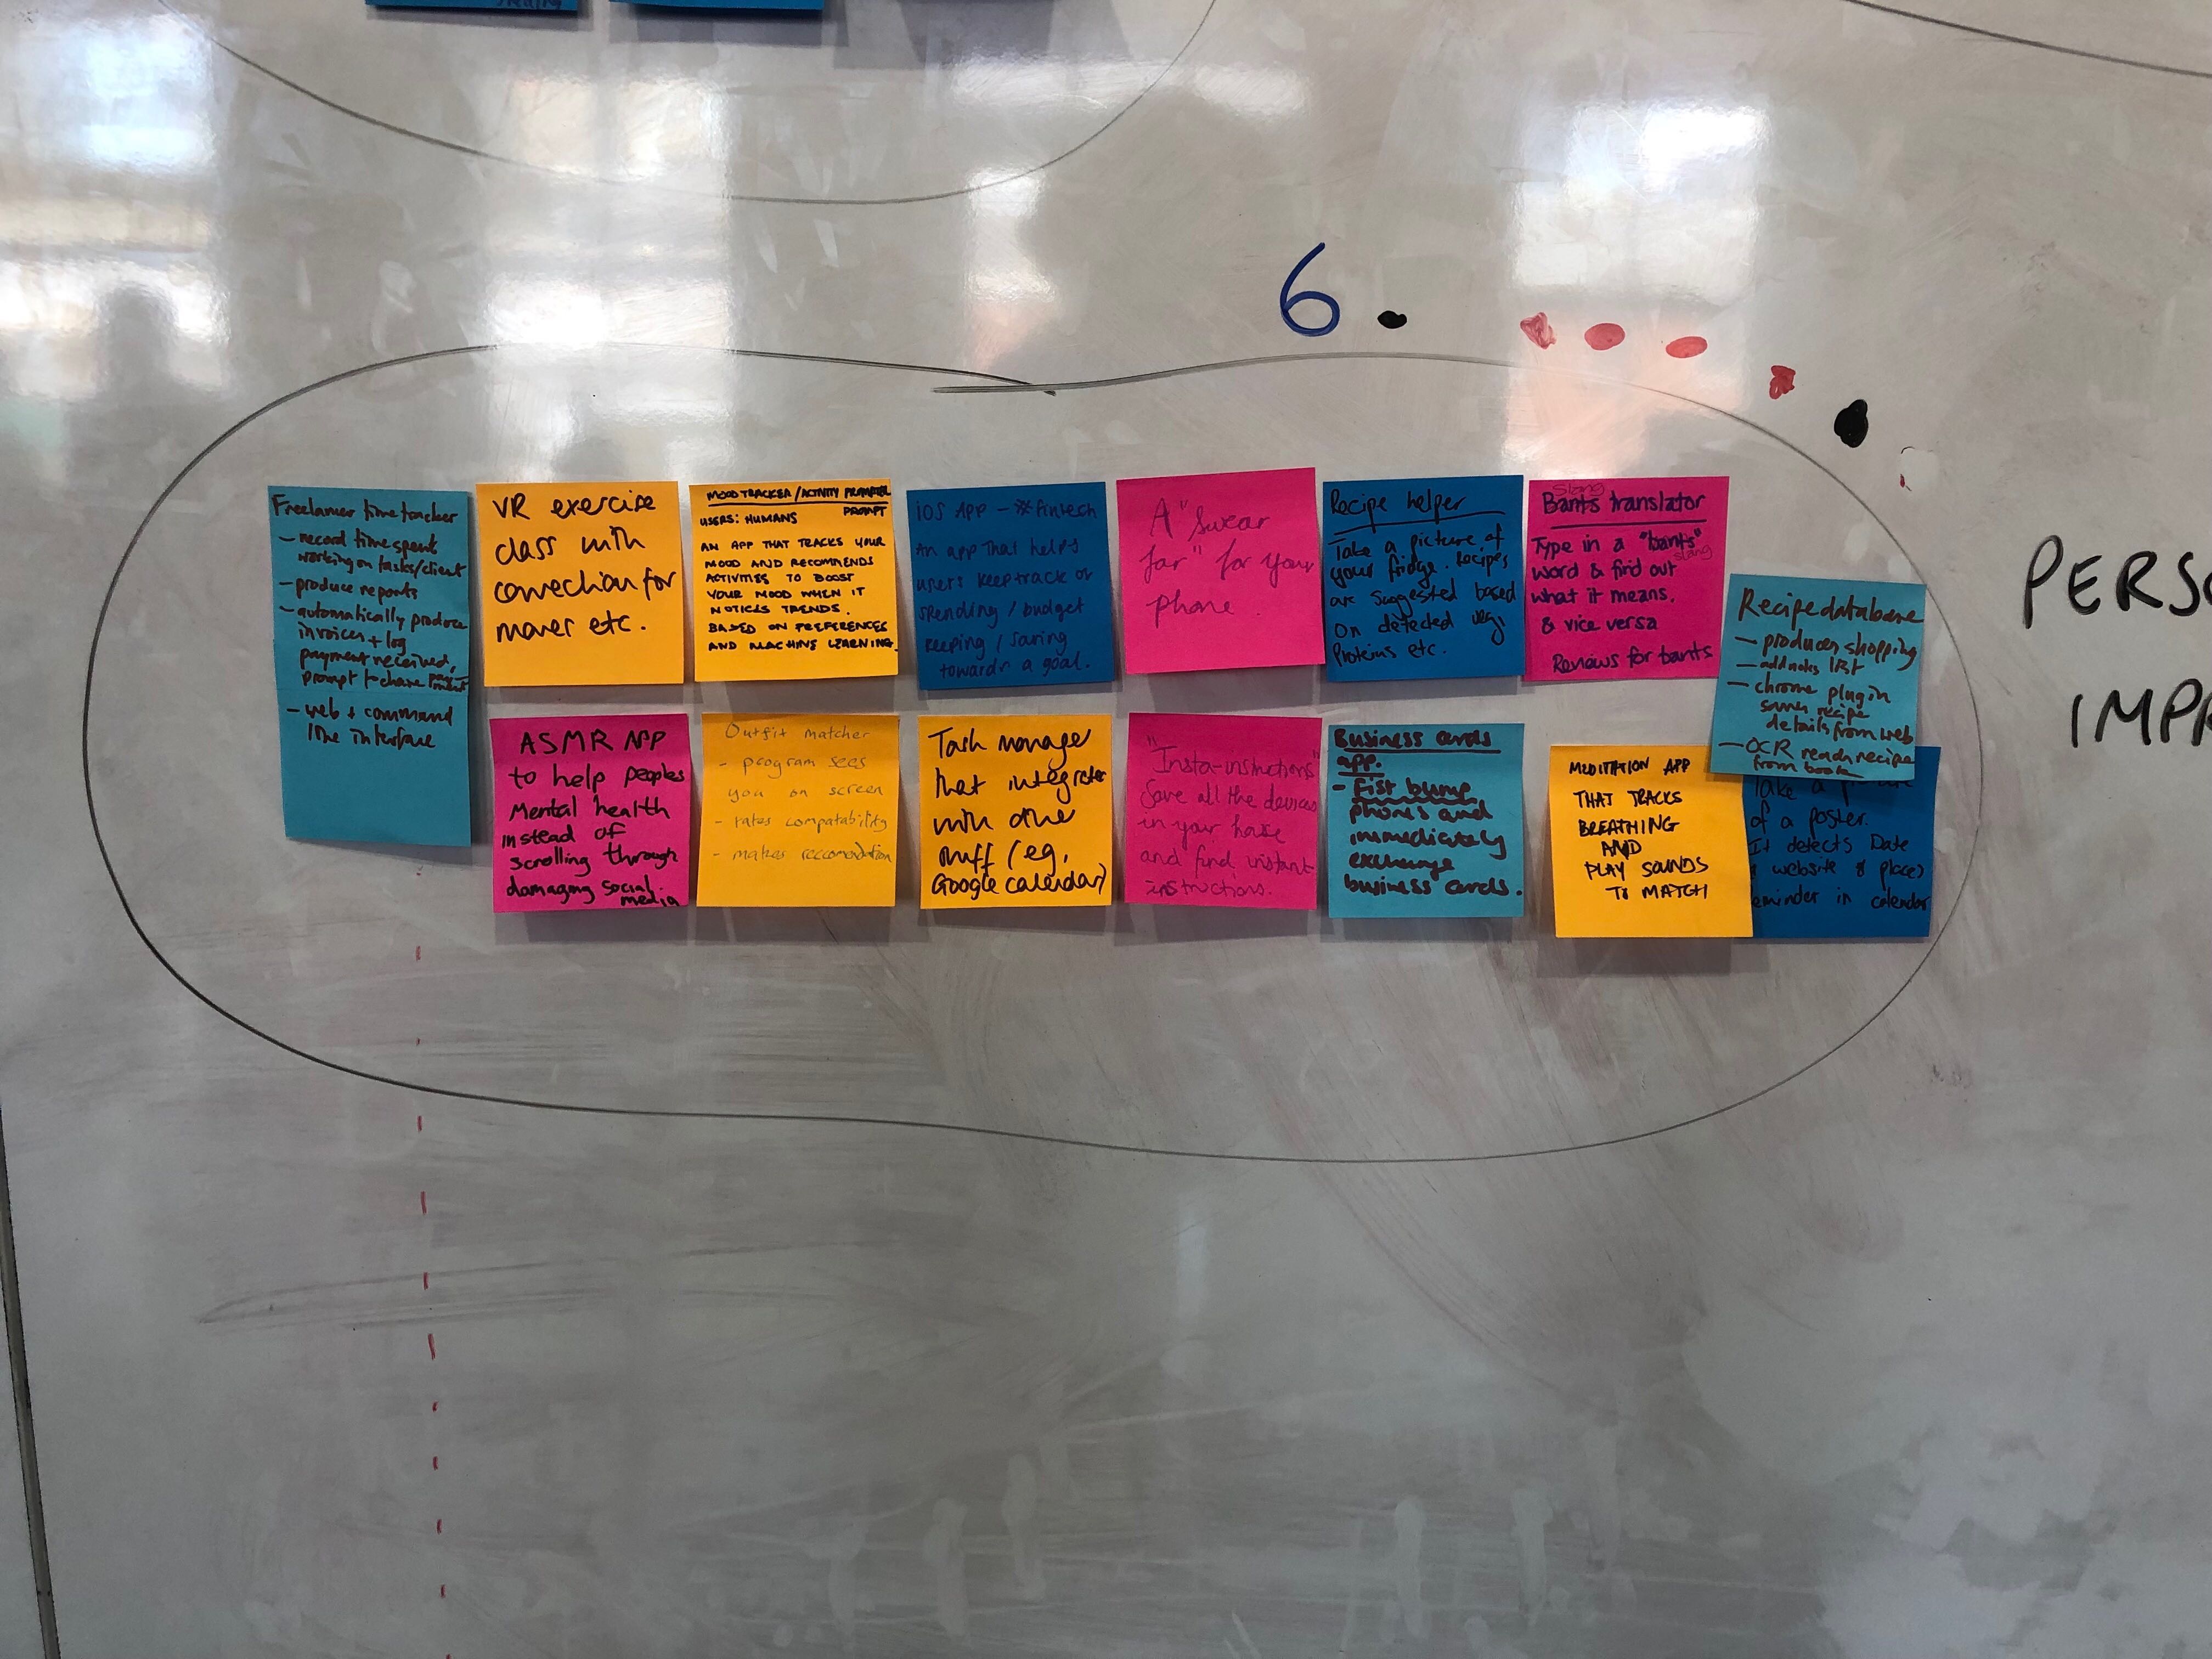 6.
PERSO
IMPR
Freelancer time tracker
- record time spent
working on tasks/client
- produce reports
- automatically produce
invoices + log
payment received,
prompt to chase payment
- web + command
line interface
VR exercise
class with
correction for
moves etc.
MOOD TRACKER / ACTIVITY PROMPTER
PROMPT
USERS: HUMANS
AN APP THAT TRACKS YOUR
MOOD AND RECOMMENDS
ACTIVITIES TO BOOST
YOUR MOOD WHEN IT
NOTICES TRENDS.
BASED ON PREFERENCES
AND MACHINE LEARNING.
iOS APP - #fintech
An app that helps
users keep track of
spending / budget
keeping / saving
towards a goal.
A "swear
jar" for your
phone.
Recipe helper
Take a picture of
your fridge. Recipes
are suggested based
on detected veg,
Proteins etc.
Slang
Bants translator
Type in a "bants"
slang
word & find out
what it means.
& vice versa
Reviews for bants
Recipe database
- produces shopping
- add notes list
- chrome plugin
saves recipe
details from web
- OCR reads recipe
from book
ASMR APP
to help peoples
Mental health
instead of
scrolling through
damaging social
media
Outfit matcher
- program sees
you on screen
- rates compatability
- makes reccomendation
Task manager
that integrates
with other
stuff (eg,
Google calendar)
"Insta-instructions"
Save all the devices
in your house
and find instant
instructions.
Business cards
app.
- Fist bump
phones and
immediately
exchange
business cards.
MEDITATION APP
THAT TRACKS
BREATHING
AND
PLAY SOUNDS
TO MATCH
Take a
of a poster.
It detects Date
website & places
eminder in calendar